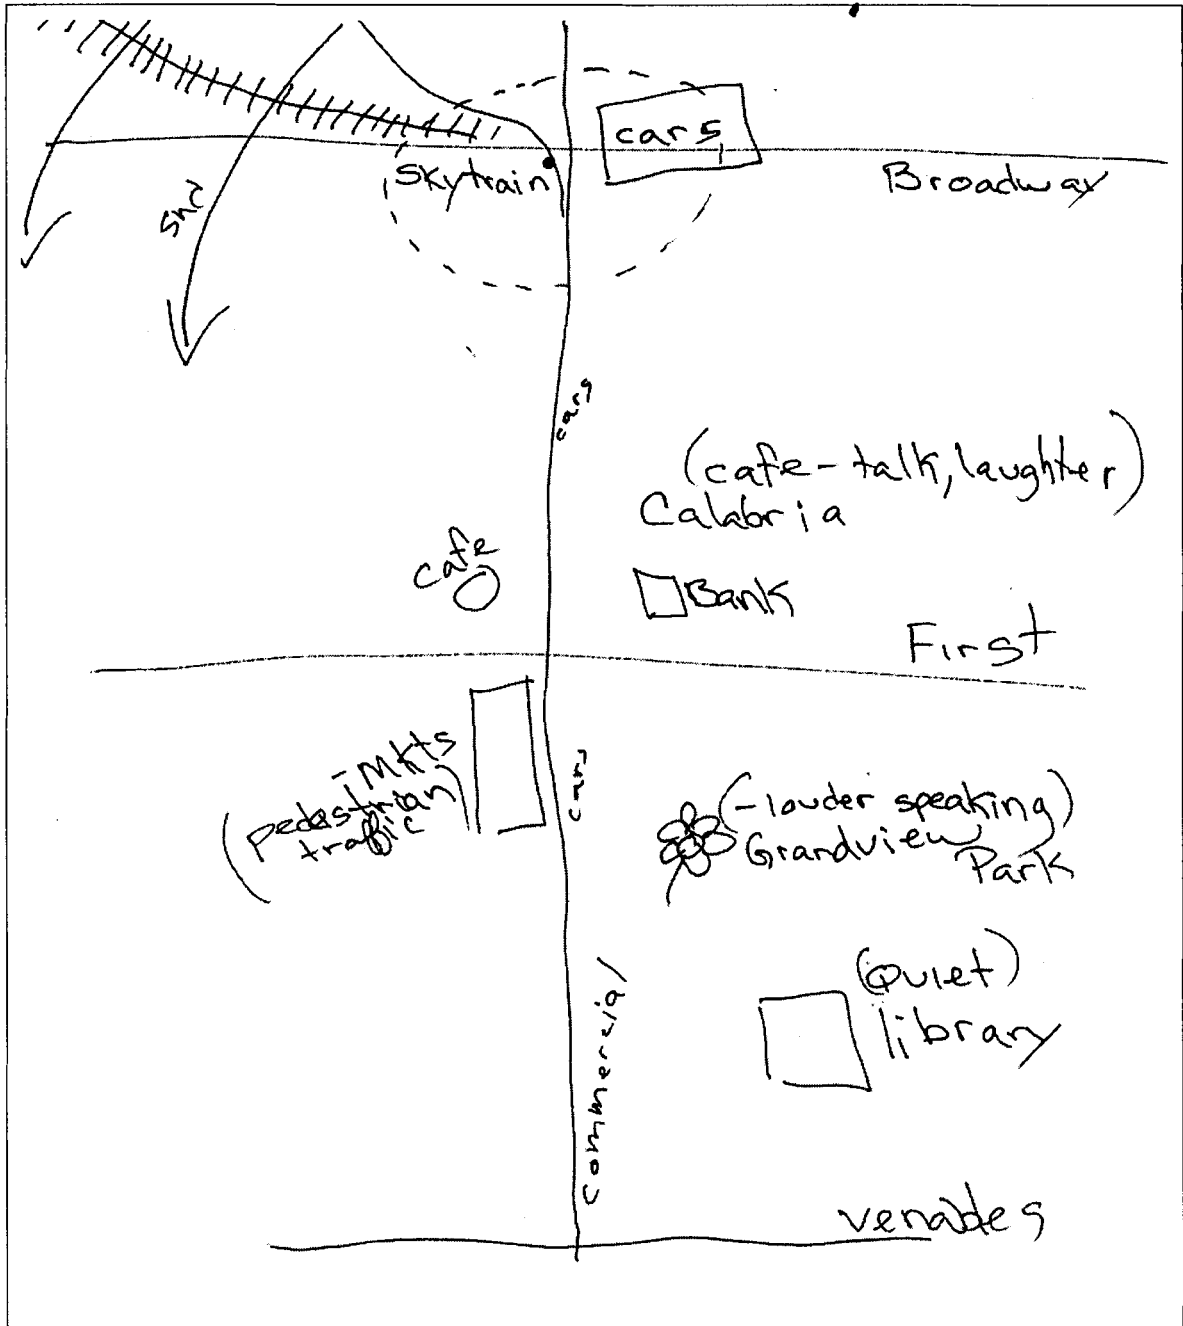 cars
Skytrain
Broadway
cars
(cafe - talk, laughter)
Calabria
cafe
Bank
First
- Mkts
(pedestrian)
traffic
cars
(-louder speaking)
Grandview
Park
(Quiet)
library
Commercial
venables